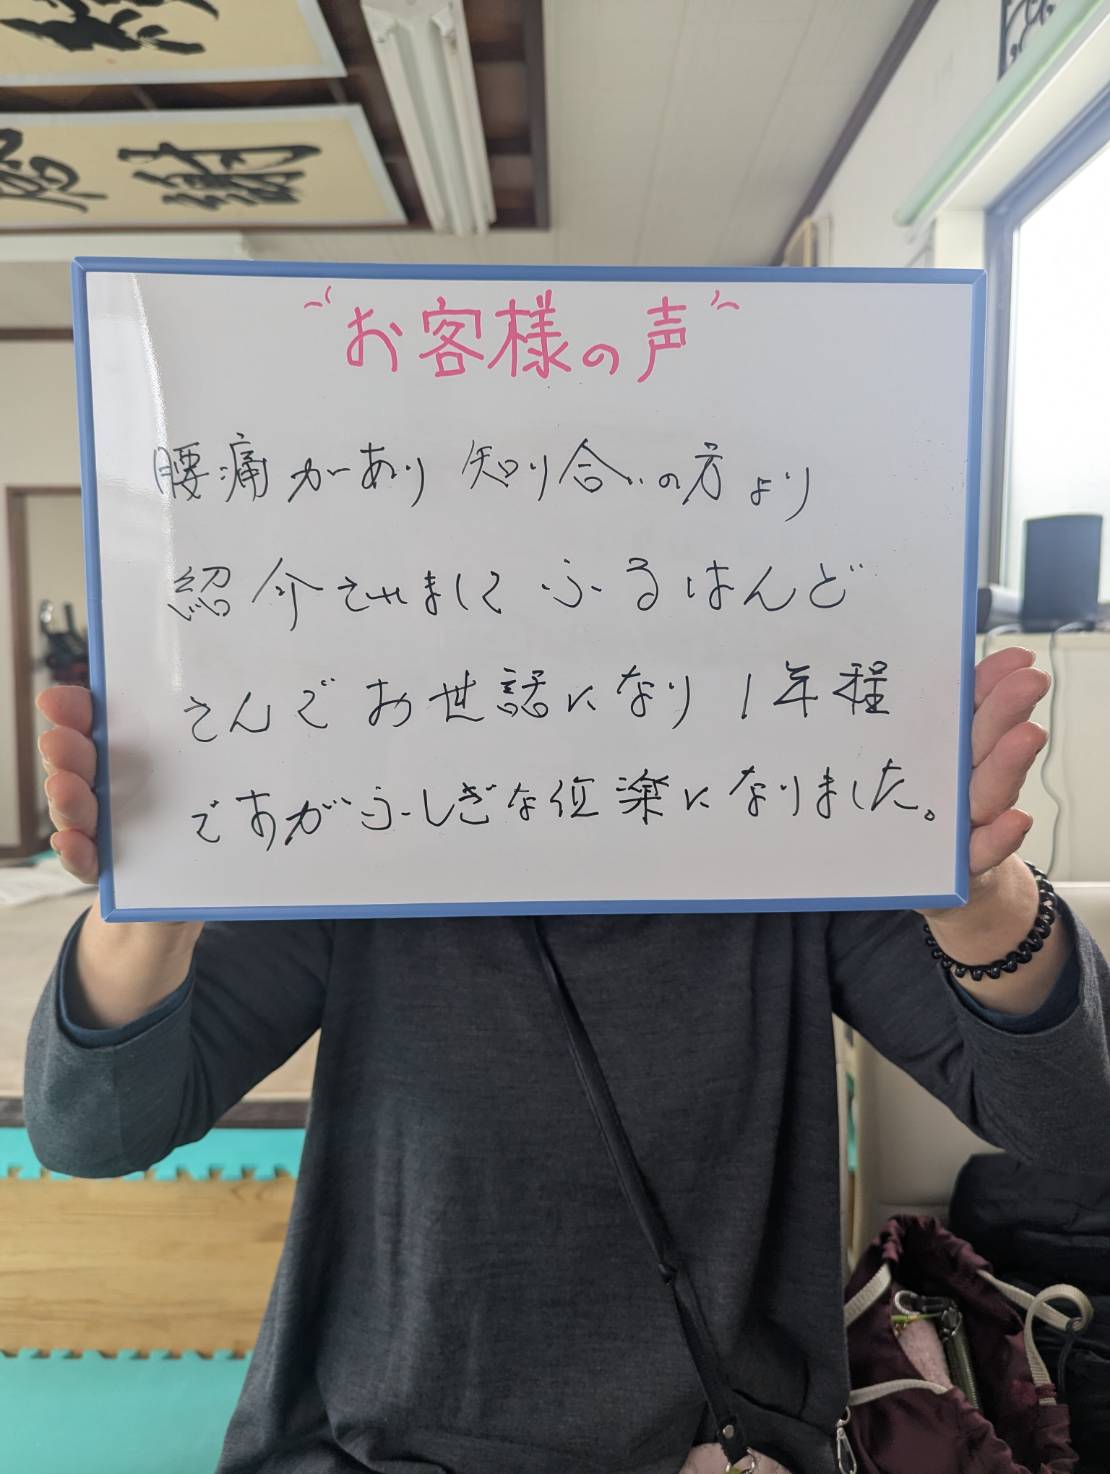 感謝
お客様の声
腰痛があり 知り合いの方より
紹介されまして ふるはんど
さんでお世話になり 1年程
ですがふしぎな位楽になりました。